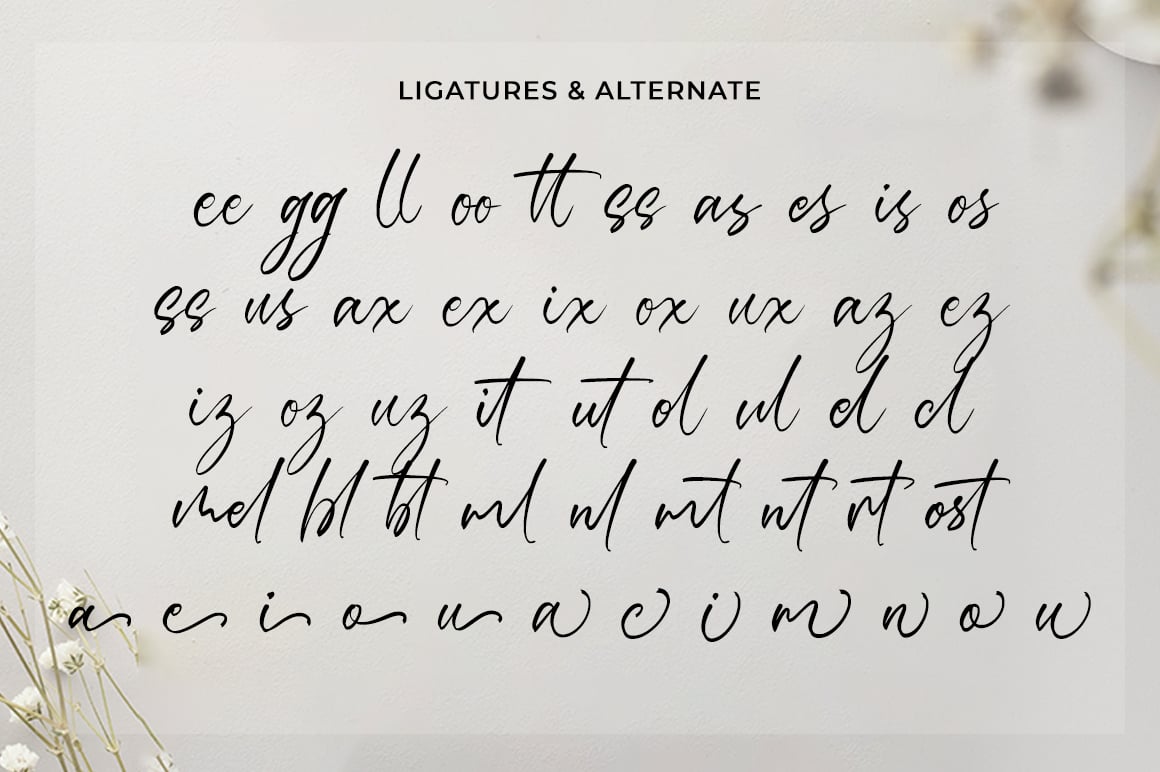 LIGATURES & ALTERNATE
ee gg ll oo tt ss as es is os
ss us ax ex ix ox ux az ez
iz oz uz it ut ol ul el cl
mel bl bt ml nl mt nt rt ost
a e i o u a c i m n o u